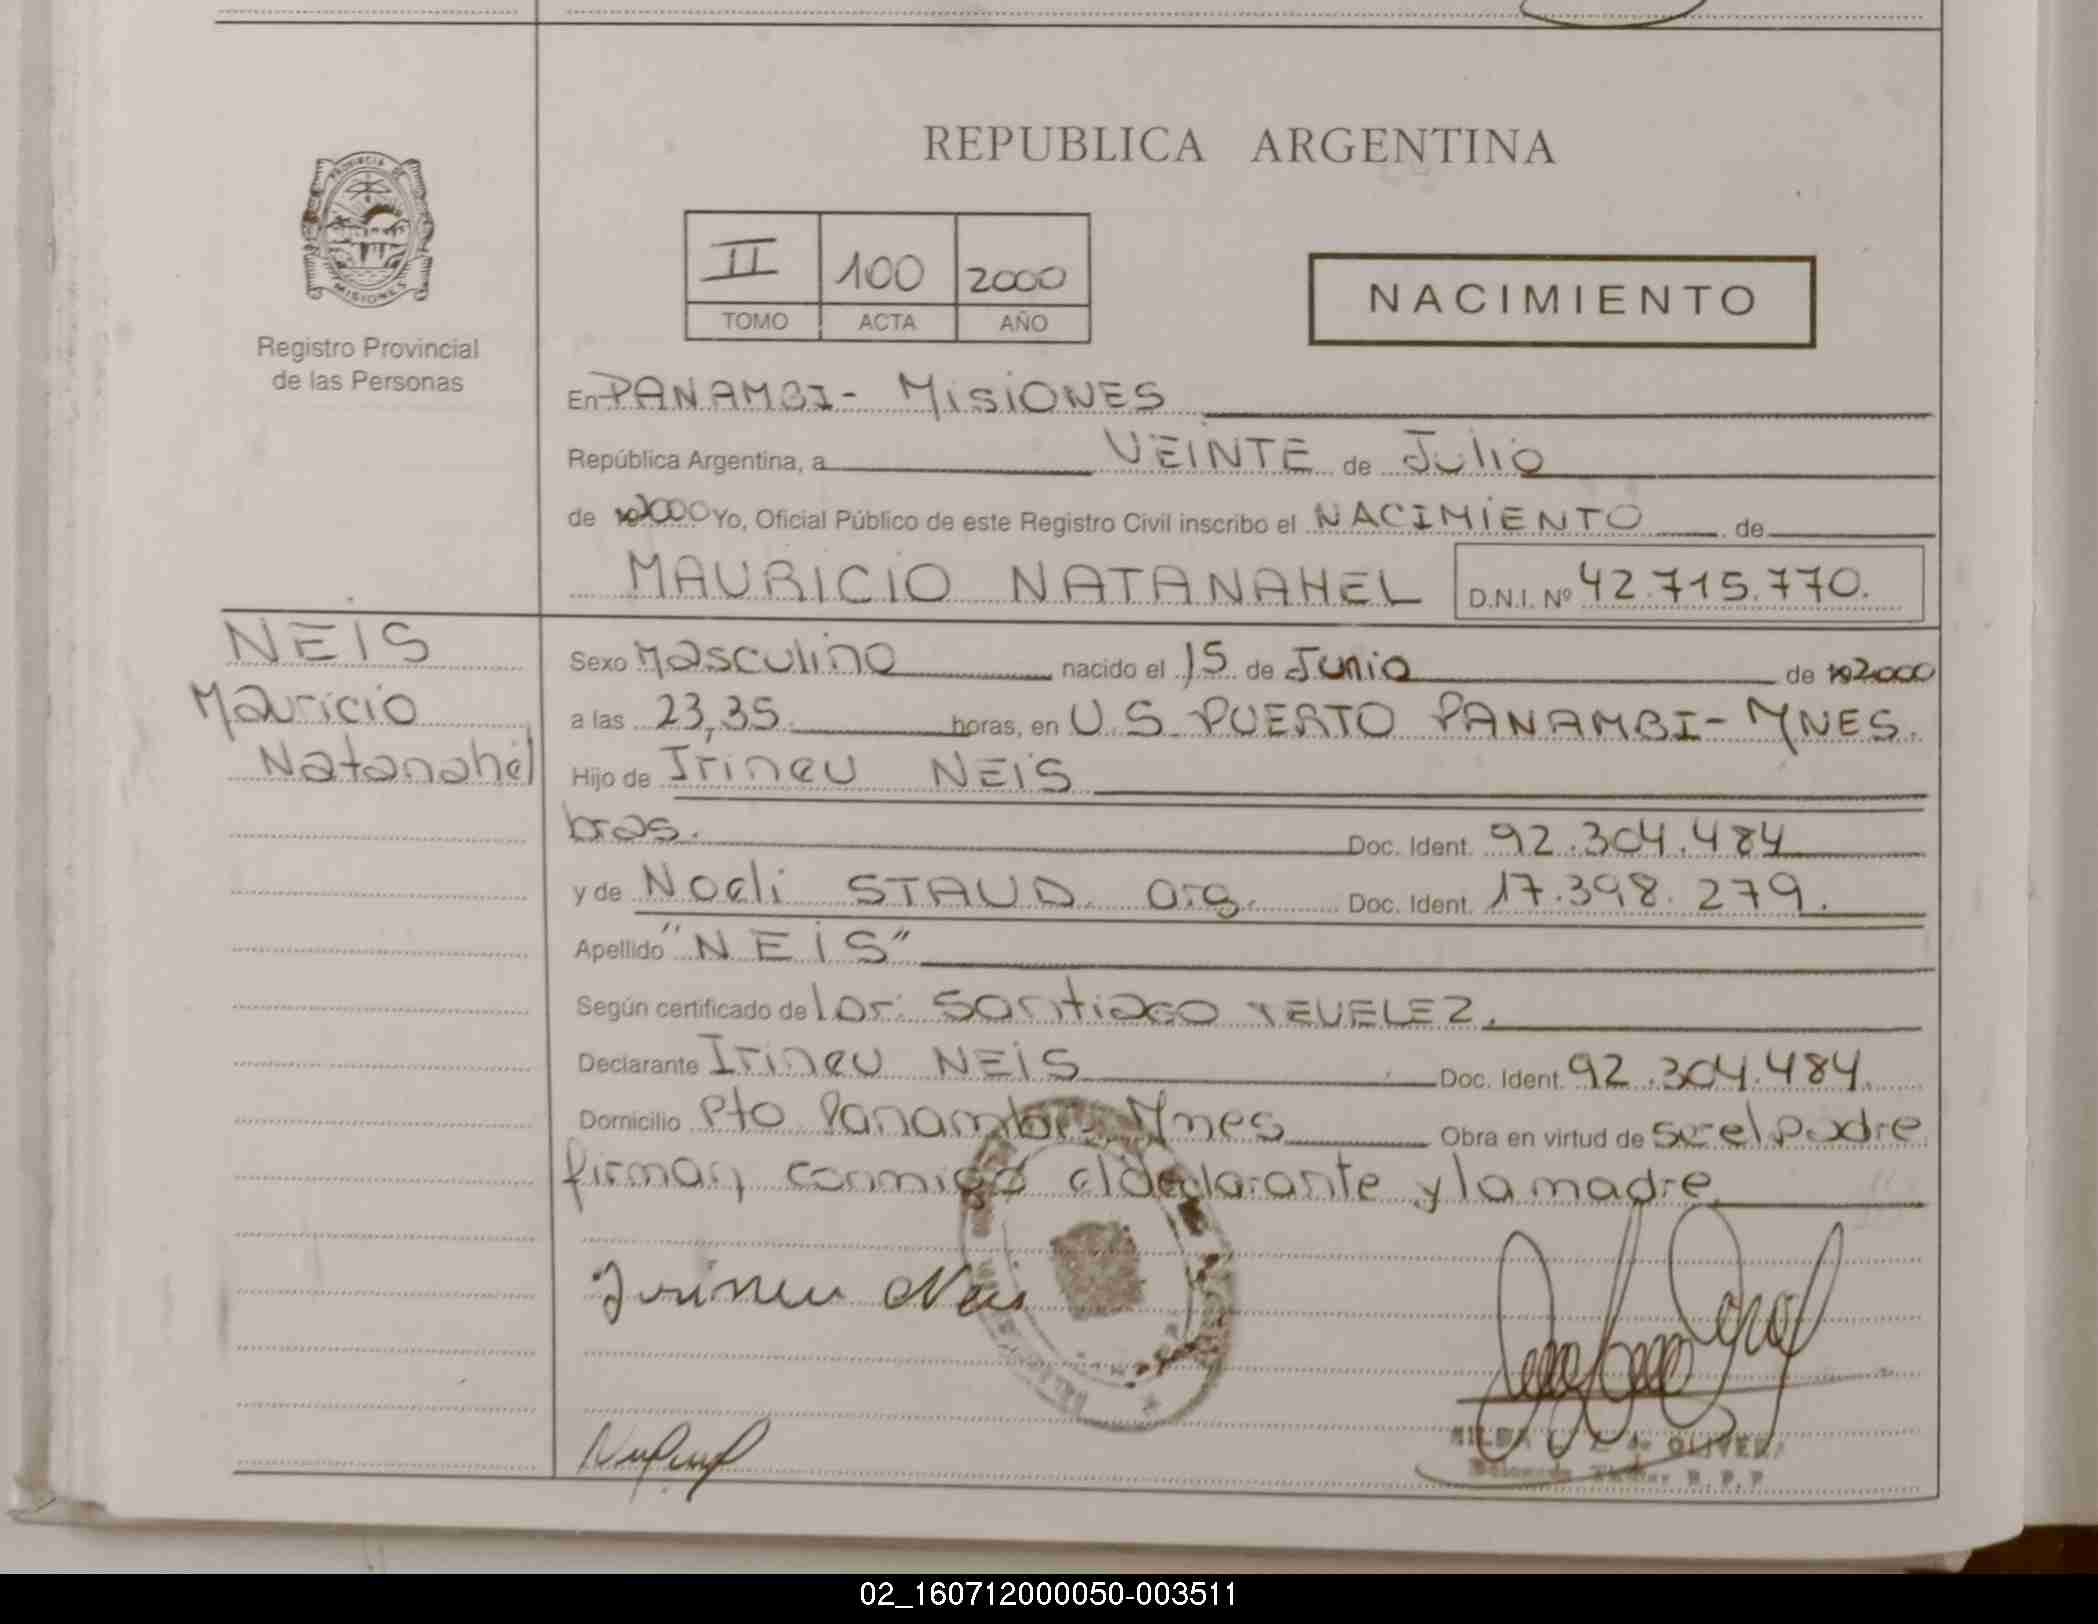 REPUBLICA ARGENTINA
PROVINCIA DE
MISIONES
Registro Provincial
de las Personas
II 100 2000
TOMO ACTA AÑO
NACIMIENTO
En PANAMBI - MISIONES
República Argentina, a VEINTE de Julio
de 2000 Yo, Oficial Público de este Registro Civil inscribo el NACIMIENTO de
MAURICIO NATANAHEL D.N.I. Nº 42.715.770.
NEIS
Mauricio
Natanahel
Sexo Masculino nacido el 15 de Junio de 192000
a las 23,35 horas, en U.S. PUERTO PANAMBI - MNES.
Hijo de Irineu NEIS
bras. Doc. Ident. 92.304.484
y de Noeli STAUD. arg. Doc. Ident. 17.398.279.
Apellido "NEIS"
Según certificado de Santiago
Declarante Irineu NEIS Doc. Ident. 92.304.484.
Domicilio Pto Panambi - Mnes Obra en virtud de ser el padre
firman conmigo el declarante y la madre
Irineu Neis
de OLIVERA
R. P. P
02_160712000050-003511